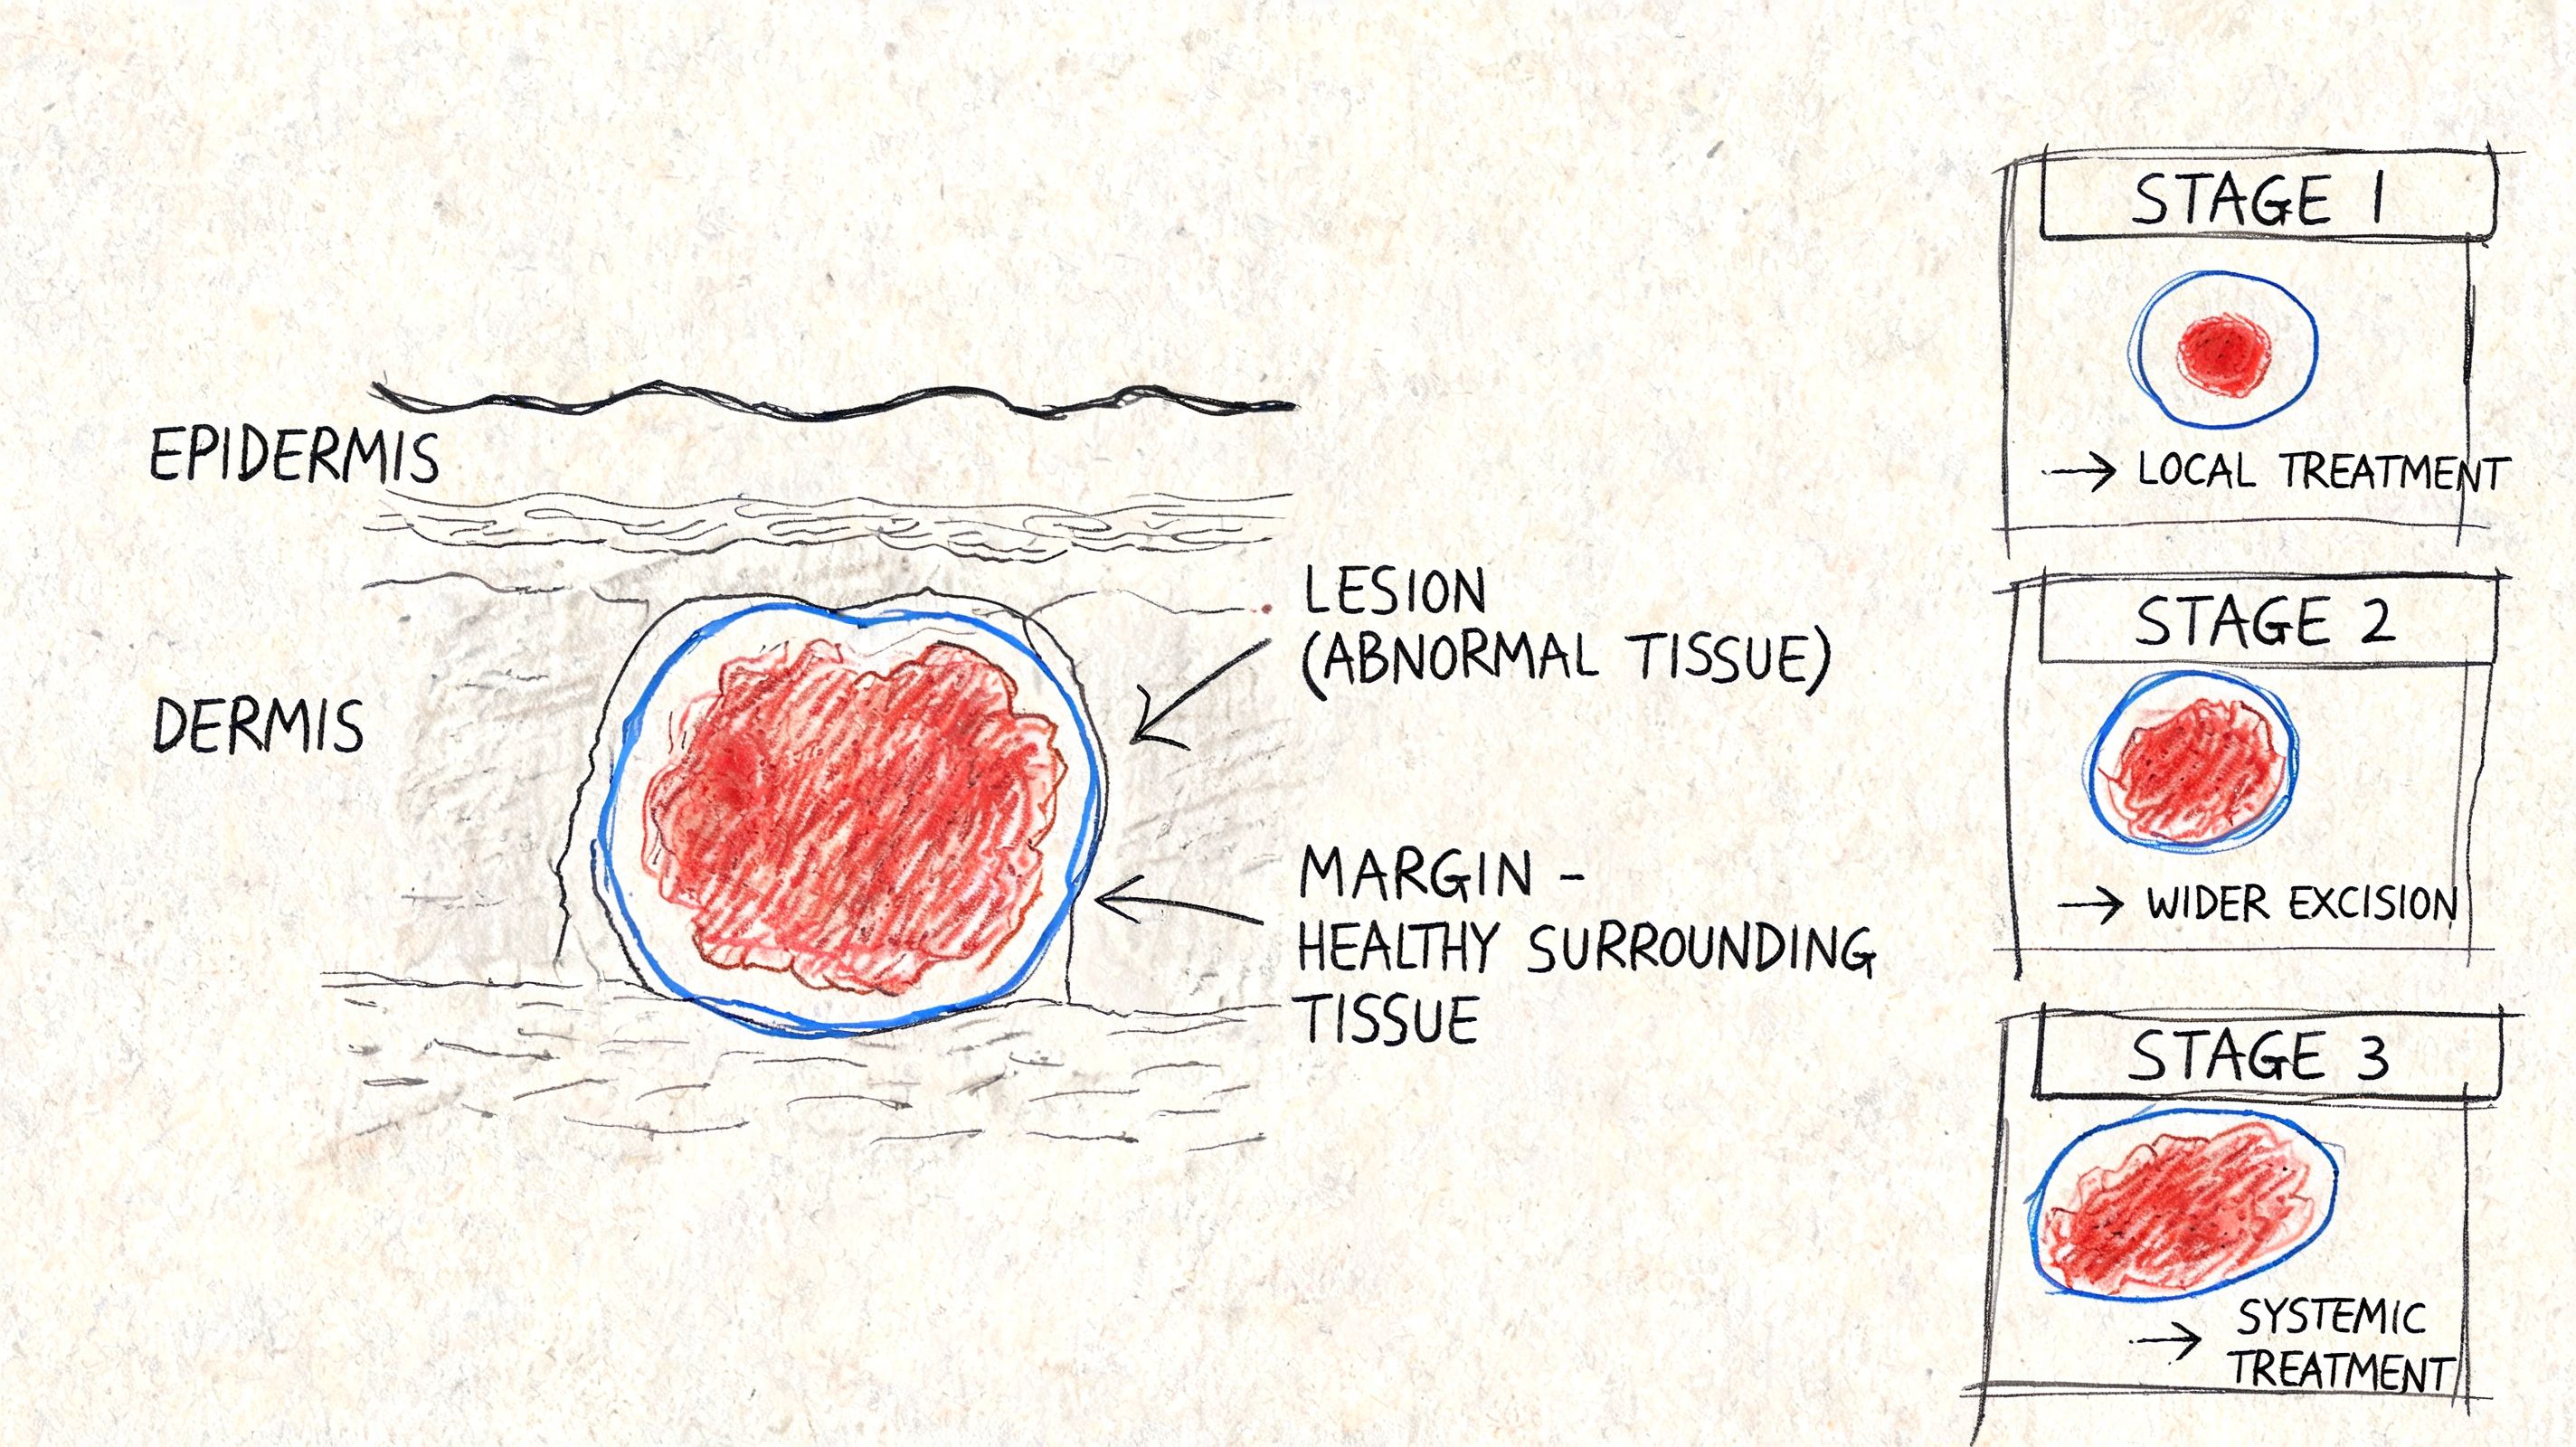 EPIDERMIS
DERMIS
LESION
(ABNORMAL TISSUE)
MARGIN -
HEALTHY SURROUNDING
TISSUE
STAGE 1
→ LOCAL TREATMENT
STAGE 2
→ WIDER EXCISION
STAGE 3
→ SYSTEMIC
TREATMENT